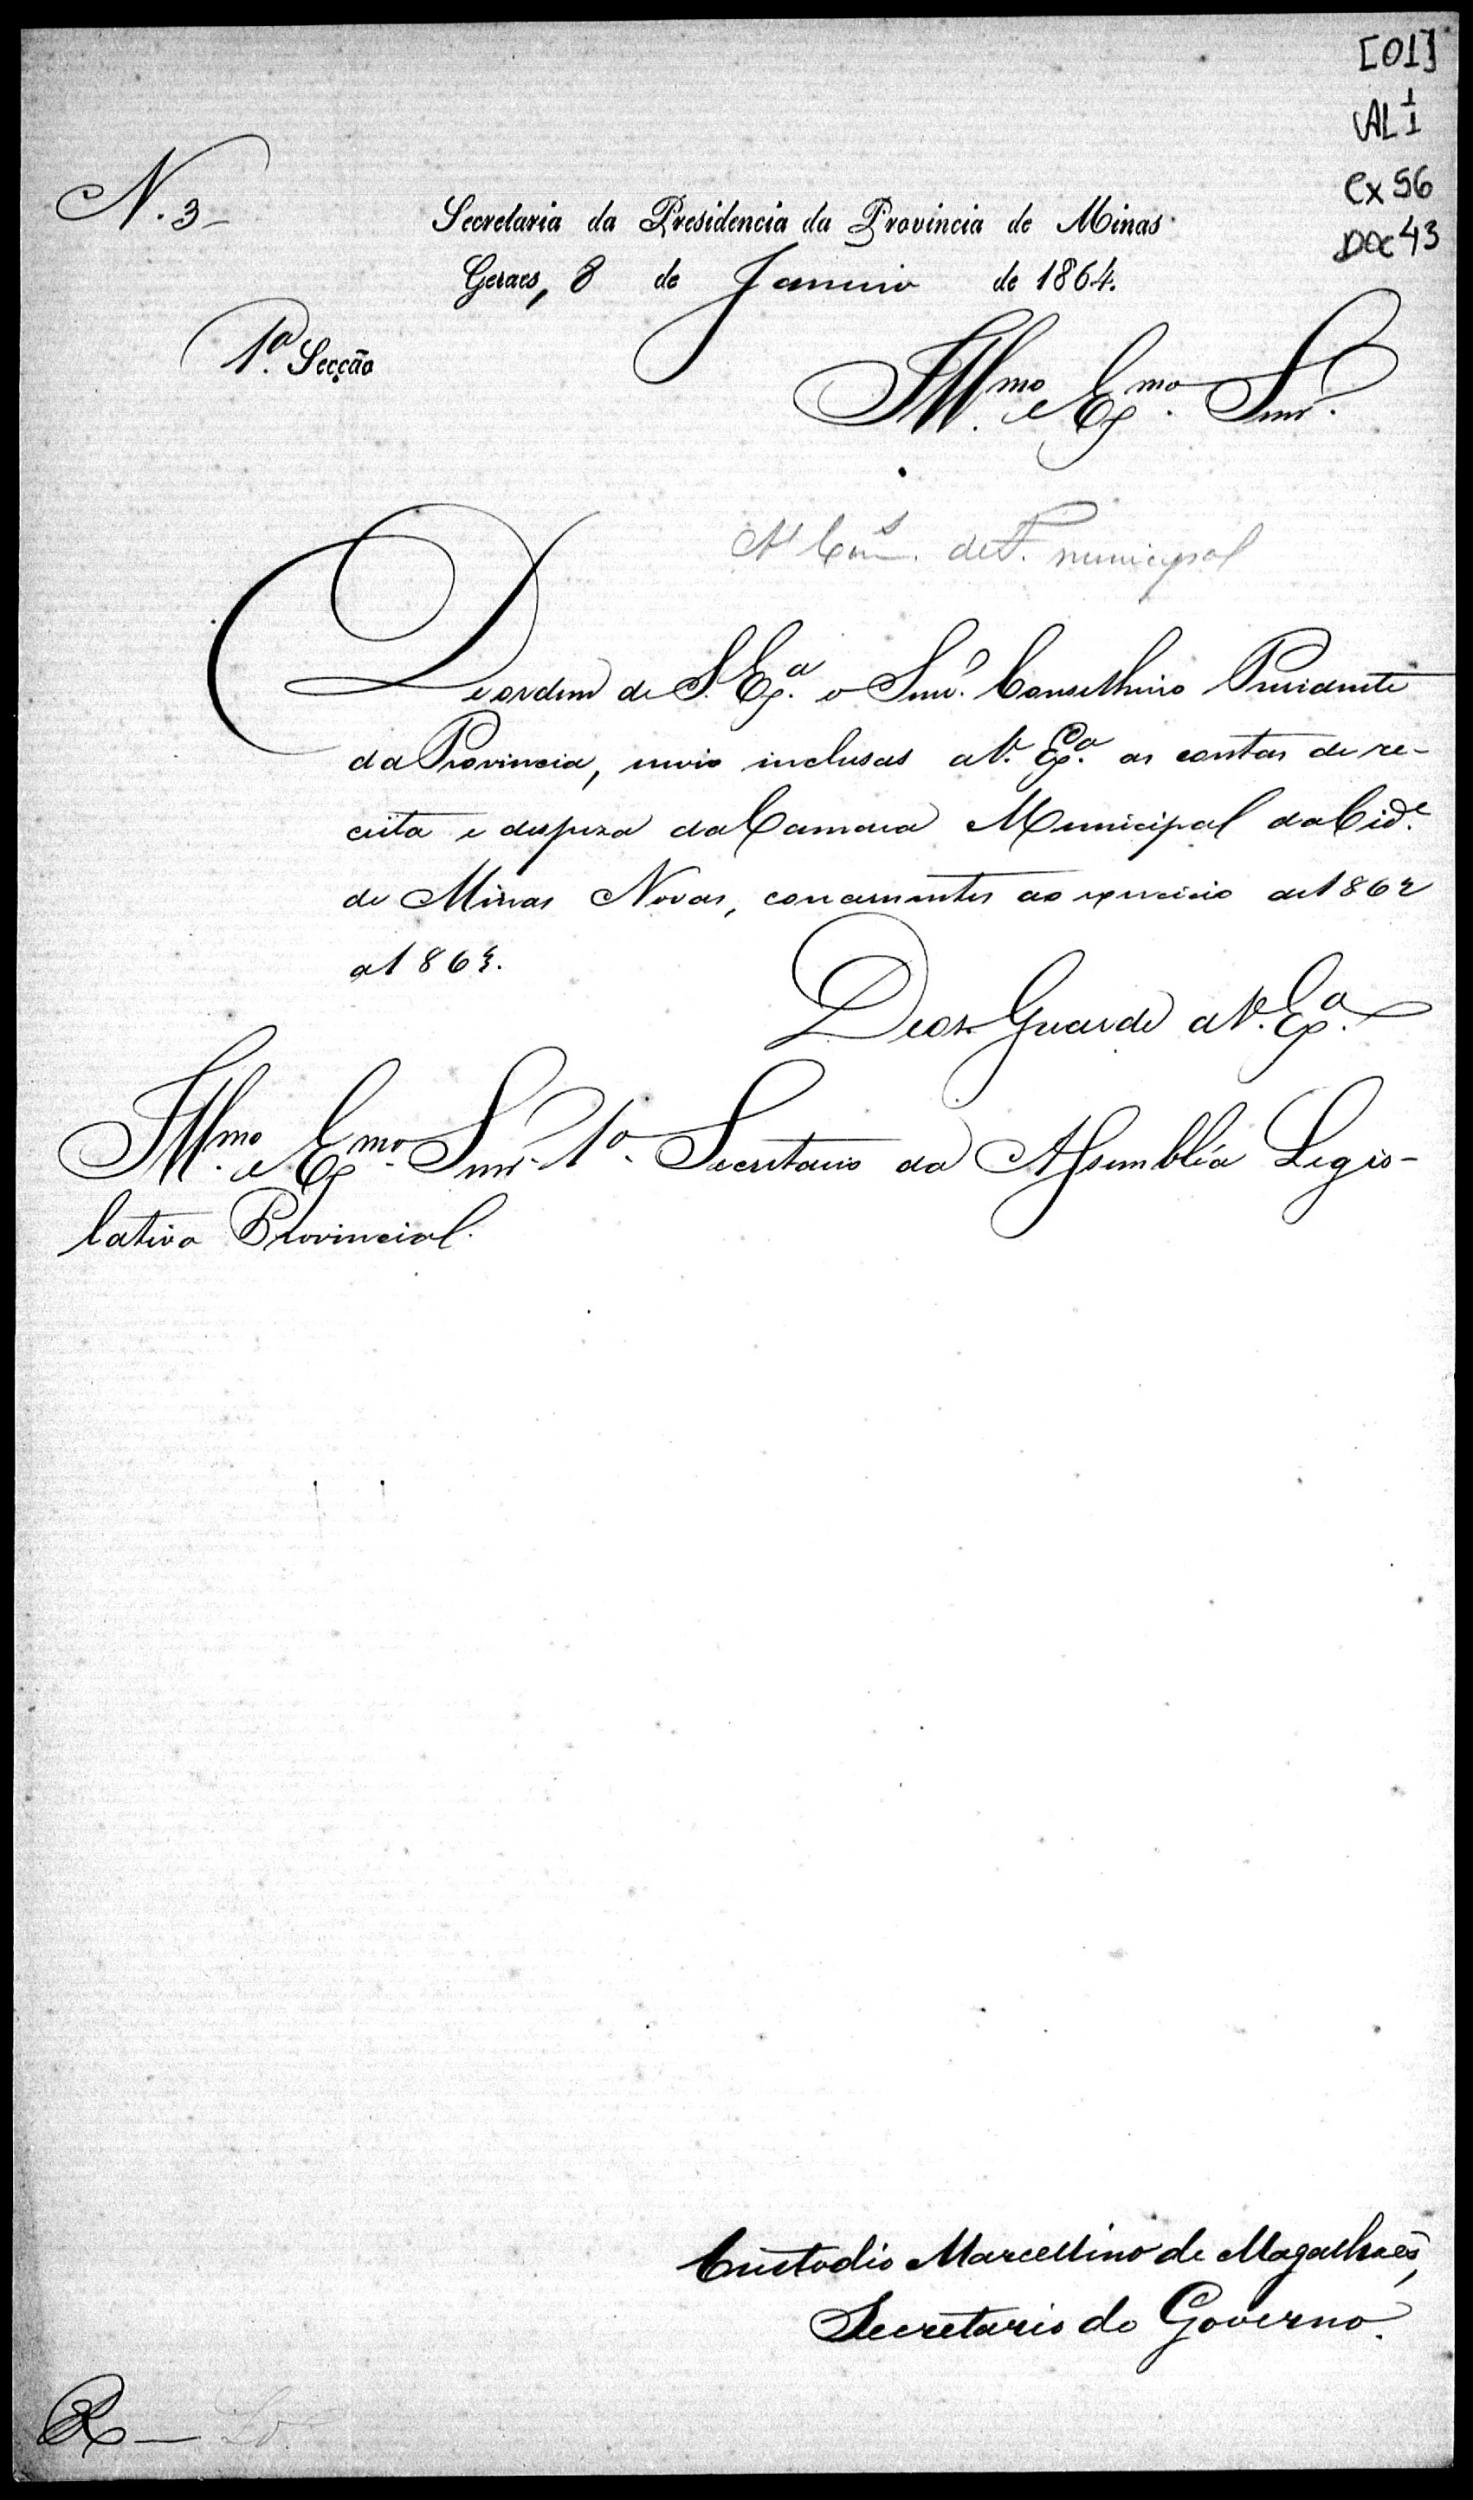 [01]
AL 1/1
Cx 56
Doc 43
N. 3
Secretaria da Presidencia da Provincia de Minas
Geraes, 8 de Janeiro de 1864.
1ª. Secção
Illmo. e Exmo. Snr.
Á Comm. de F. municipal
De ordem de S. Exª. o Snr. Conselheiro Presidente
da Provincia, envio inclusas a V. Exª. as contas de re-
ceita e despeza da Camara Municipal da Cide.
de Minas Novas, concernentes ao exercicio de 1862
a 1863.
Deos Guarde a V. Exª.
Illmo. e Exmo. Snr. 1º. Secretario da Assembléa Legis-
lativa Provincial.
Custodio Marcellino de Magalhães,
Secretario do Governo.